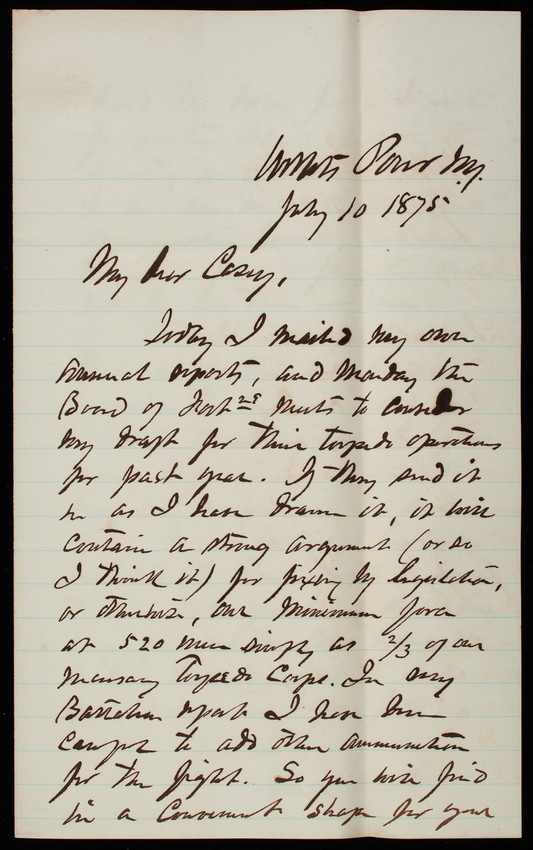 Willets Point N.Y.
July 10 1875
My dear Casey,
Today I mailed my own
annual reports, and Monday the
Board of Fortns meets to consider
my draft for their torpedo operations
for past year. If they send it
in as I have drawn it, it will
contain a strong argument (or so
I think it) for fixing by legislation,
or otherwise, our minimum force
at 520 men simply as 2/3 of our
necessary Torpedo Corps. In my
Battalion report I have been
careful to add other ammunition
for the fight. So you will find
in a convenient shape for your